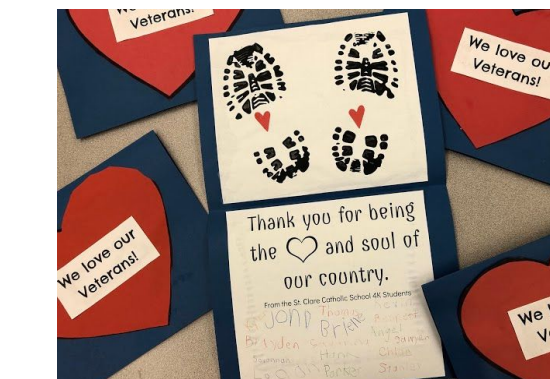 We love our
Veterans!
We love our
Veterans!
We love our
Veterans!
Thank you for being
the and soul of
our country.
From the St. Clare Catholic School 4K Students
John Thomas
Brielle
Angel
Jameson
Chloe
Parker Stanley
We